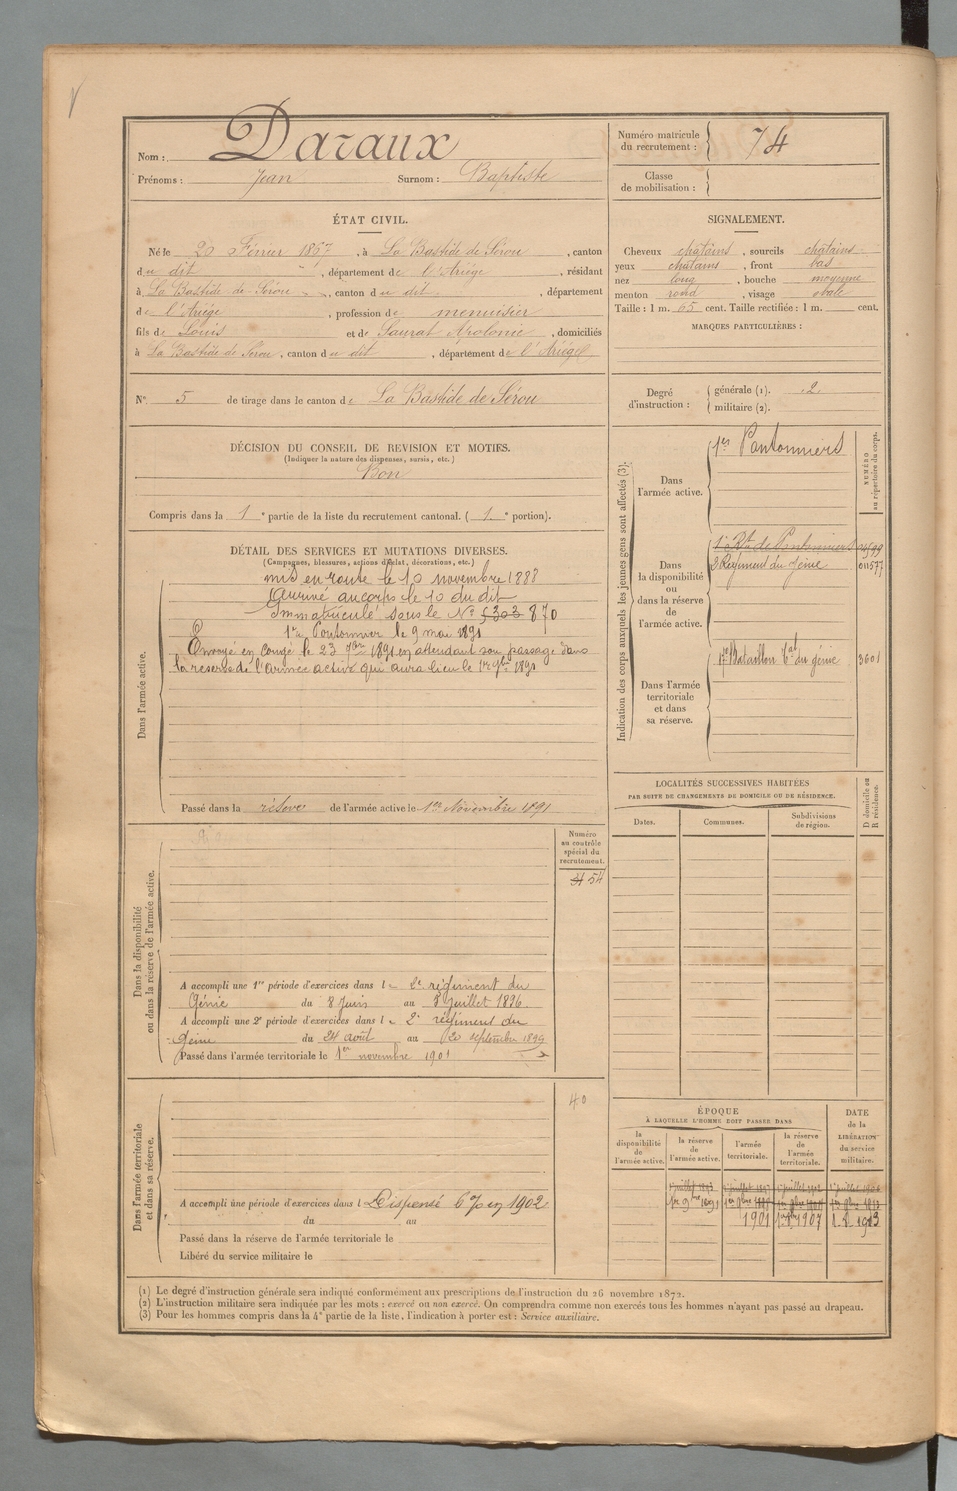 Nom : Daraux
Prénoms : Jean Surnom : Baptiste
Numéro matricule du recrutement : 74
Classe de mobilisation :
ÉTAT CIVIL.
Né le 20 Février 1867, à La Bastide de Sérou, canton
du dit, département de l'Ariège, résidant
à La Bastide de Sérou, canton du dit, département
de l'Ariège, profession de menuisier
fils de Louis et de Saurat Apolonie, domiciliés
à La Bastide de Serou, canton du dit, département de l'Ariège
SIGNALEMENT.
Cheveux chatains, sourcils chatains
yeux chatains, front bas
nez long, bouche moyenne
menton rond, visage ovale
Taille : 1 m. 65 cent. Taille rectifiée : 1 m. cent.
MARQUES PARTICULIÈRES :
N° 5 de tirage dans le canton de La Bastide de Sérou
Degré d'instruction : générale (1). 2
militaire (2).
DÉCISION DU CONSEIL DE REVISION ET MOTIFS.
(Indiquer la nature des dispenses, sursis, etc.)
Bon
Compris dans la 1e partie de la liste du recrutement cantonal. (1e portion).
DÉTAIL DES SERVICES ET MUTATIONS DIVERSES.
(Campagnes, blessures, actions d'éclat, décorations, etc.)
Dans l'armée active.
mis en route le 10 novembre 1888
Arrivé au corps le 10 du dit
Immatriculé sous le N° 5303 870
1er Pontonnier le 9 mai 1891
Envoyé en congé le 23 7bre 1891 en attendant son passage dans
la réserve de l'armée active qui aura lieu le 1er 9bre 1891
Passé dans la réserve de l'armée active le 1er Novembre 1891
Indication des corps auxquels les jeunes gens sont affectés (3).
NUMÉRO au répertoire du corps.
Dans l'armée active.
1er Pontonniers
Dans la disponibilité ou dans la réserve de l'armée active.
1er Rt de Pontonniers
2 Régiment du Génie 011577
Dans l'armée territoriale et dans sa réserve.
17e Bataillon tal du génie 3601
LOCALITÉS SUCCESSIVES HABITÉES
PAR SUITE DE CHANGEMENTS DE DOMICILE OU DE RÉSIDENCE.
Dates. Communes. Subdivisions de région. D domicile ou R résidence.
Dans la disponibilité ou dans la réserve de l'armée active.
Numéro au contrôle spécial du recrutement.
54
A accompli une 1re période d'exercices dans le 2e régiment du
Génie du 8 Juin au 5 Juillet 1896
A accompli une 2e période d'exercices dans le 2e régiment du
Génie du 24 août au 20 septembre 1899
Passé dans l'armée territoriale le 1er novembre 1901
Dans l'armée territoriale et dans sa réserve.
40
A accompli une période d'exercices dans l Dispensé 6 % en 1902
du au
Passé dans la réserve de l'armée territoriale le
Libéré du service militaire le
ÉPOQUE
À LAQUELLE L'HOMME DOIT PASSER DANS
la disponibilité de l'armée active. la réserve de l'armée active. l'armée territoriale. la réserve de l'armée territoriale.
DATE de la LIBÉRATION du service militaire.
1er 9bre 1891
1901 1er 9bre 1907 1913
(1) Le degré d'instruction générale sera indiqué conformément aux prescriptions de l'instruction du 26 novembre 1872.
(2) L'instruction militaire sera indiquée par les mots : exercé ou non exercé. On comprendra comme non exercés tous les hommes n'ayant pas passé au drapeau.
(3) Pour les hommes compris dans la 4e partie de la liste, l'indication à porter est : Service auxiliaire.